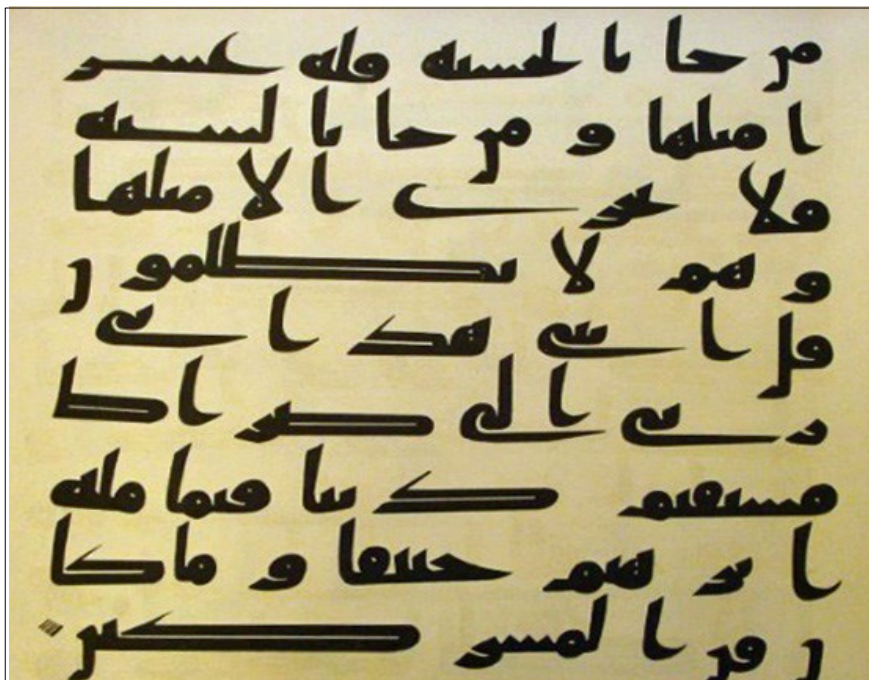 من جا بالحسنة فله عشر
امثلها و من جا بالسيئة
فلا يجزى الا مثلها
و هم لا يظلمون
قل انني هداني
ربي الى صراط
مستقيم دينا قيما ملة
ابرهيم حنيفا و ما كا
ن من المشركين